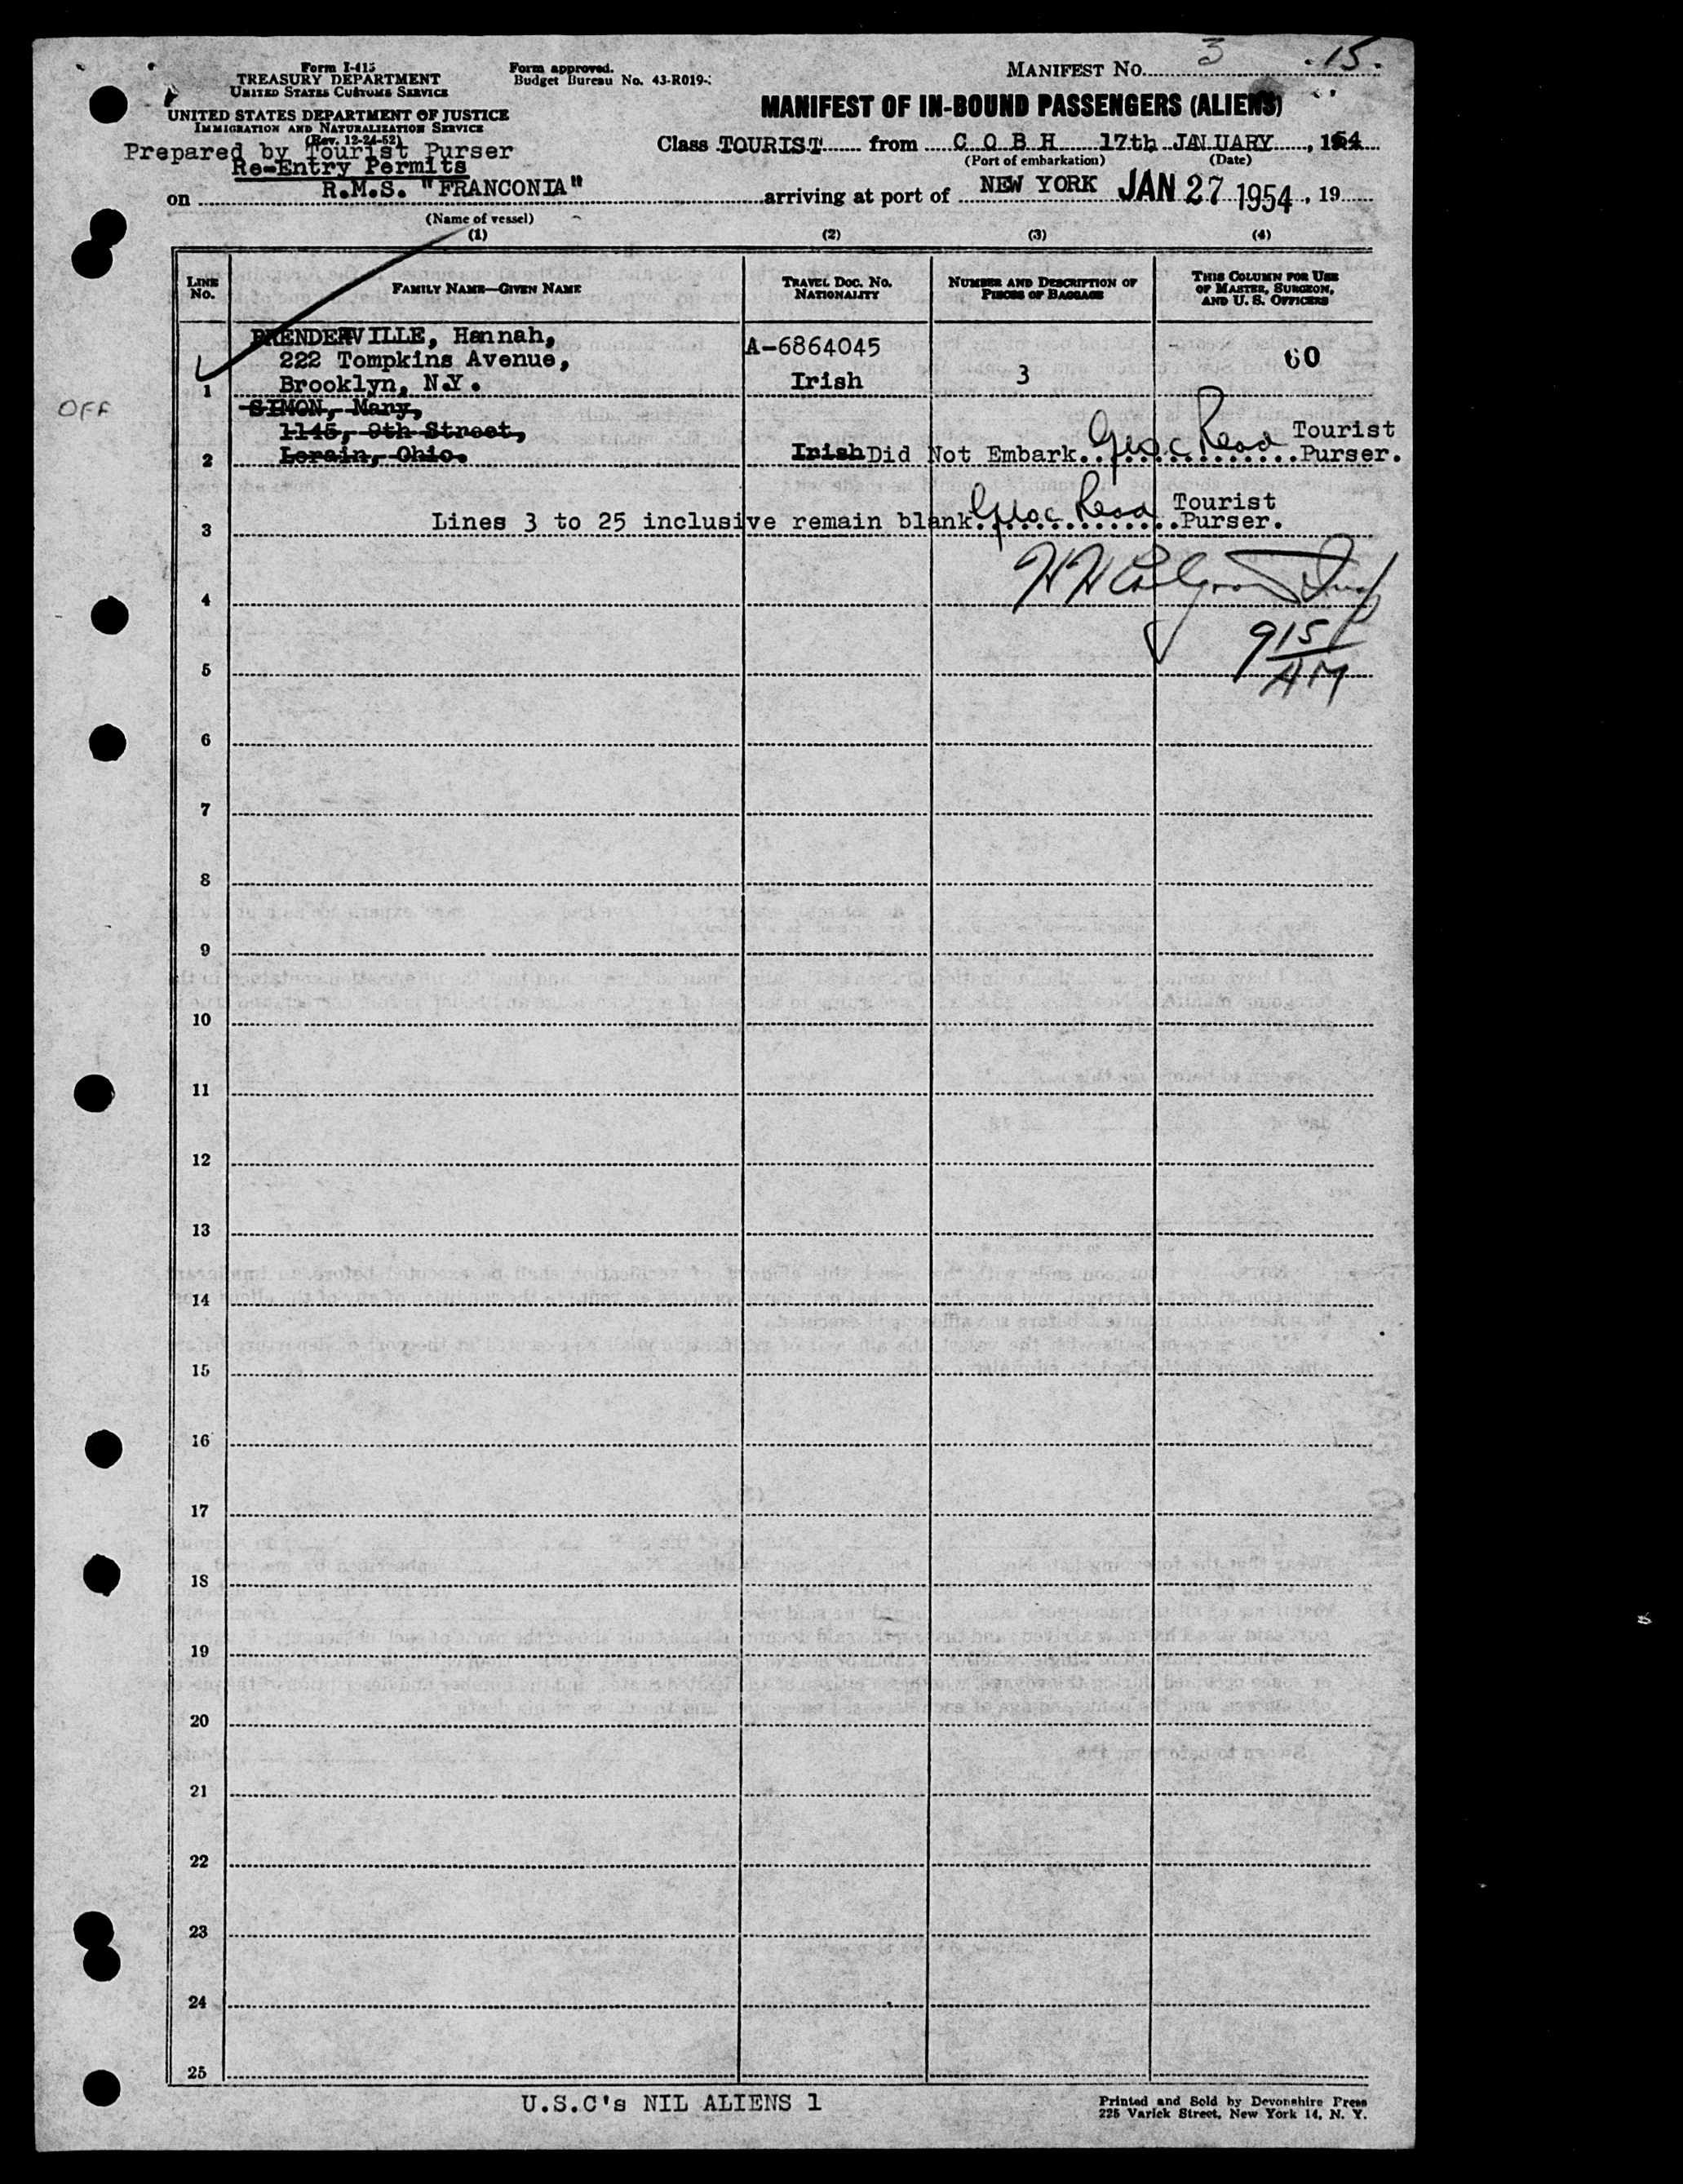 Form I-415
TREASURY DEPARTMENT
UNITED STATES CUSTOMS SERVICE
UNITED STATES DEPARTMENT OF JUSTICE
IMMIGRATION AND NATURALIZATION SERVICE
(Rev. 12-24-52)
Prepared by Tourist Purser
Re-Entry Permits
Form approved.
Budget Bureau No. 43-R019-
MANIFEST NO. 3 15.
MANIFEST OF IN-BOUND PASSENGERS (ALIENS)
Class TOURIST from C O B H 17th JANUARY, 1954
(Port of embarkation) (Date)
on R.M.S. "FRANCONIA" arriving at port of NEW YORK JAN 27 1954, 19
(Name of vessel)
(1) (2) (3) (4)
LINE NO. FAMILY NAME—GIVEN NAME TRAVEL DOC. NO. NATIONALITY NUMBER AND DESCRIPTION OF PIECES OF BAGGAGE THIS COLUMN FOR USE OF MASTER, SURGEON, AND U. S. OFFICERS
BRENDERVILLE, Hannah,
222 Tompkins Avenue, A-6864045 60
1 Brooklyn, N.Y. Irish 3
OFF SIMON, Mary,
1145, 9th Street, Tourist
2 Lorain, Ohio. Irish Did Not Embark. Geo. C Read Purser.
Tourist
3 Lines 3 to 25 inclusive remain blank. Geo. C Read Purser.
4
915
AM
5
6
7
8
9
10
11
12
13
14
15
16
17
18
19
20
21
22
23
24
25
U.S.C's NIL ALIENS 1
Printed and Sold by Devonshire Press
225 Varick Street, New York 14, N. Y.